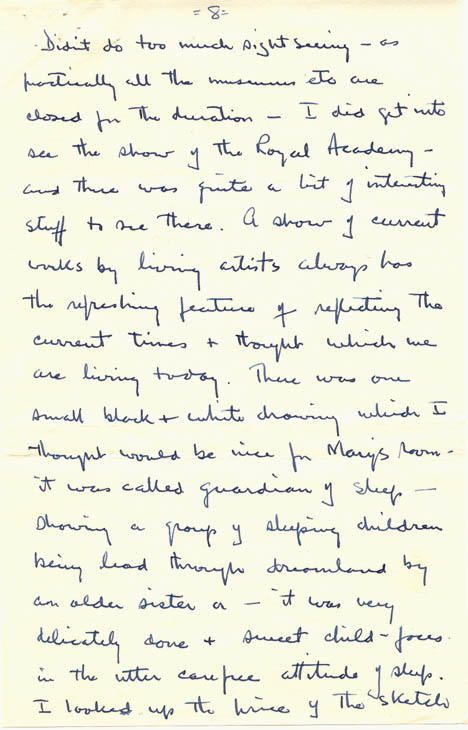 =8=
Didn't do too much sight seeing – as
practically all the museums etc are
closed for the duration – I did get into
see the show of the Royal Academy –
and there was quite a bit of interesting
stuff to see there. A show of current
works by living artists always has
the refreshing feature of reflecting the
current times + thought which we
are living today. There was one
small black + white drawing which I
thought would be nice for Marys room –
it was called guardian of sleep –
showing a group of sleeping children
being lead through dreamland by
an older sister or – it was very
delicately done + sweet child-faces
in the utter carefree attitude of sleep.
I looked up the price of the "sketch